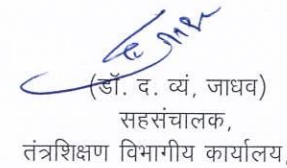 (डॉ. द. व्यं, जाधव)
सहसंचालक,
तंत्रशिक्षण विभागीय कार्यालय,